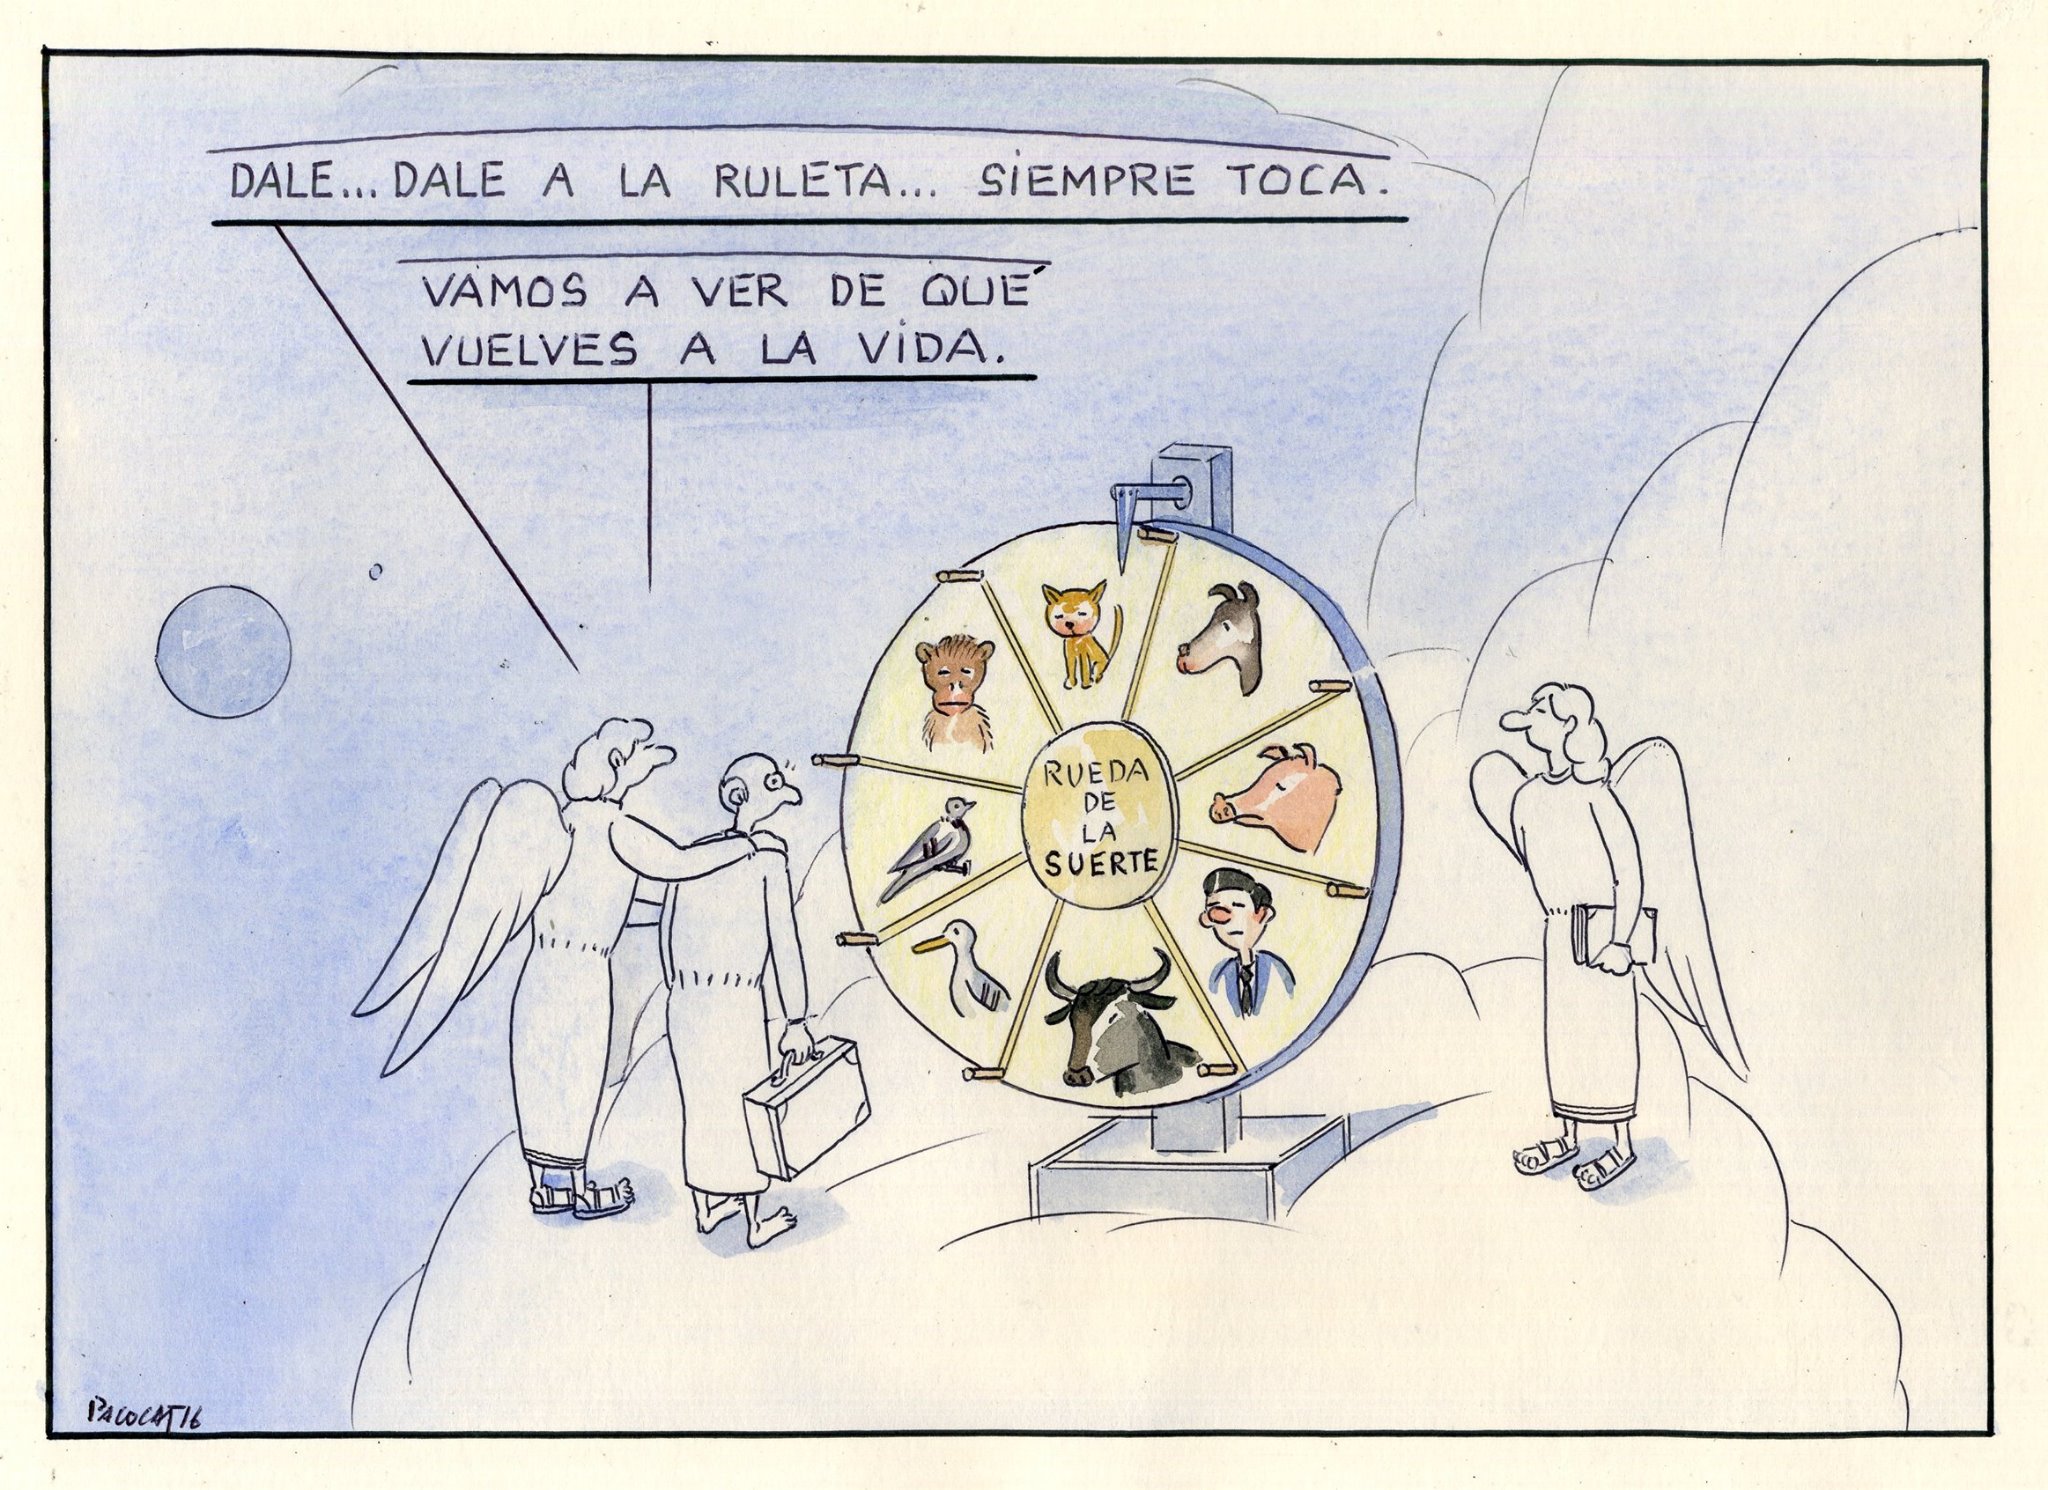 DALE... DALE A LA RULETA... SIEMPRE TOCA.
VAMOS A VER DE QUÉ
VUELVES A LA VIDA.
RUEDA
DE
LA
SUERTE
PACOCAT16